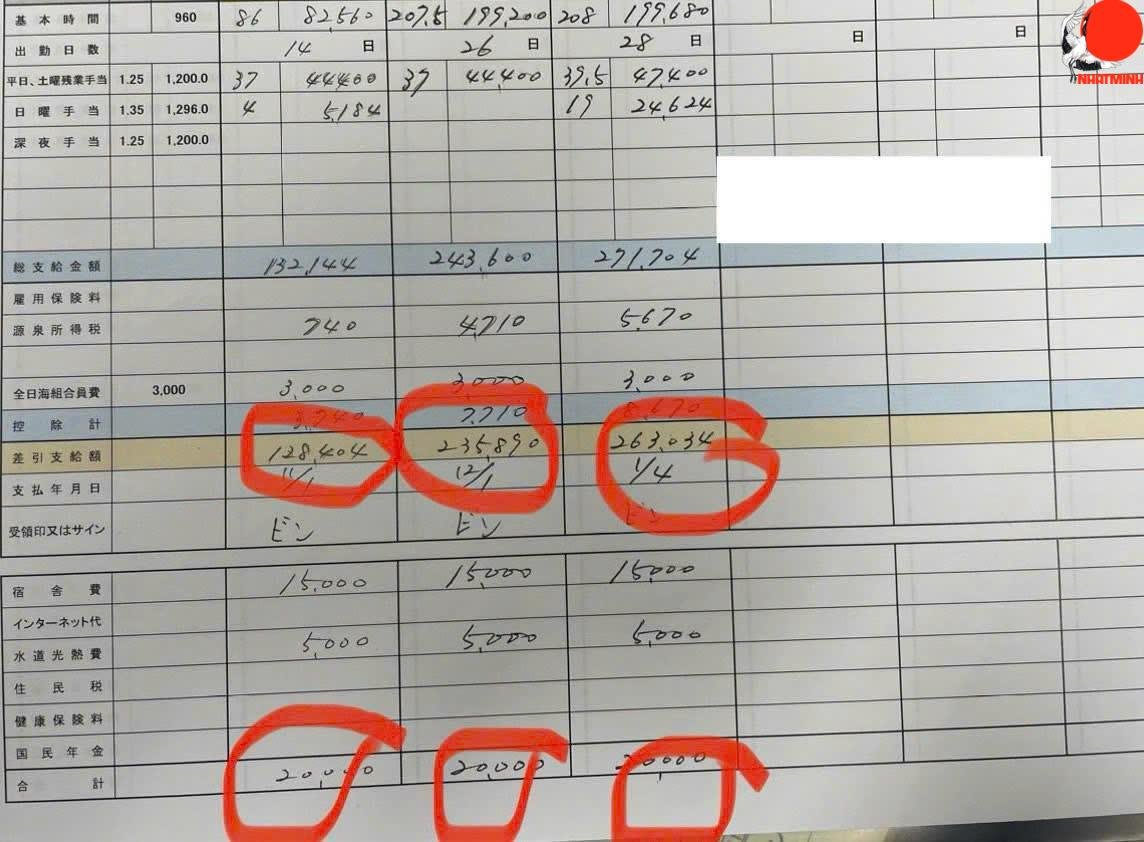 基本時間 960 86 82,560 207.5 199,200 208 199,680
出勤日数 14 日 26 日 28 日 日 日
平日、土曜残業手当 1.25 1,200.0 37 44400 37 44,400 39.5 47,400
日曜手当 1.35 1,296.0 4 5,184 19 24,624
深夜手当 1.25 1,200.0
総支給金額 132,144 243,600 271,704
雇用保険料
源泉所得税 740 4,710 5,670
全日海組合員費 3,000 3,000 3,000 3,000
控除計 3,740 7,710 8,670
差引支給額 128,404 235,890 263,034
支払年月日 11/1 12/1 1/4
受領印又はサイン ビン ビン ビン
宿舎費 15,000 15,000 15,000
インターネット代
水道光熱費 5,000 5,000 5,000
住民税
健康保険料
国民年金
合計 20,000 20,000 20,000
NHATMINH